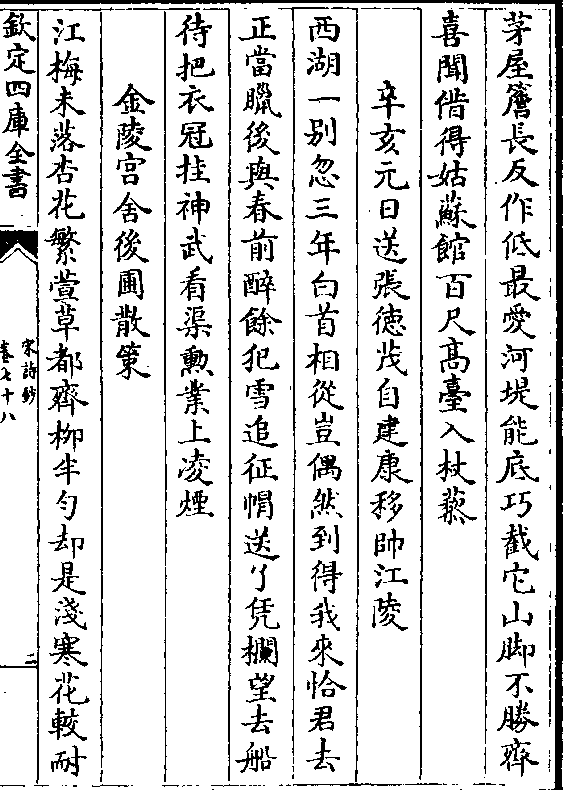 茅屋簷長反作低最愛河堤能底巧截它山脚不勝齊
喜聞借得姑蘇館百尺髙臺入杖藜
辛亥元日送張徳茂自建康移帥江陵
西湖一别忽三年白首相從豈偶然到得我來恰君去
正當臘後與春前醉餘犯雪追征帽送了凭欄望去船
待把衣冠挂神武看渠勲業上凌煙
金陵宫舍後圃散策
江梅未落杏花繁萱草都齊栁半匀却是淺寒花較耐
欽定四庫全書
宋詩鈔
卷七十八
二